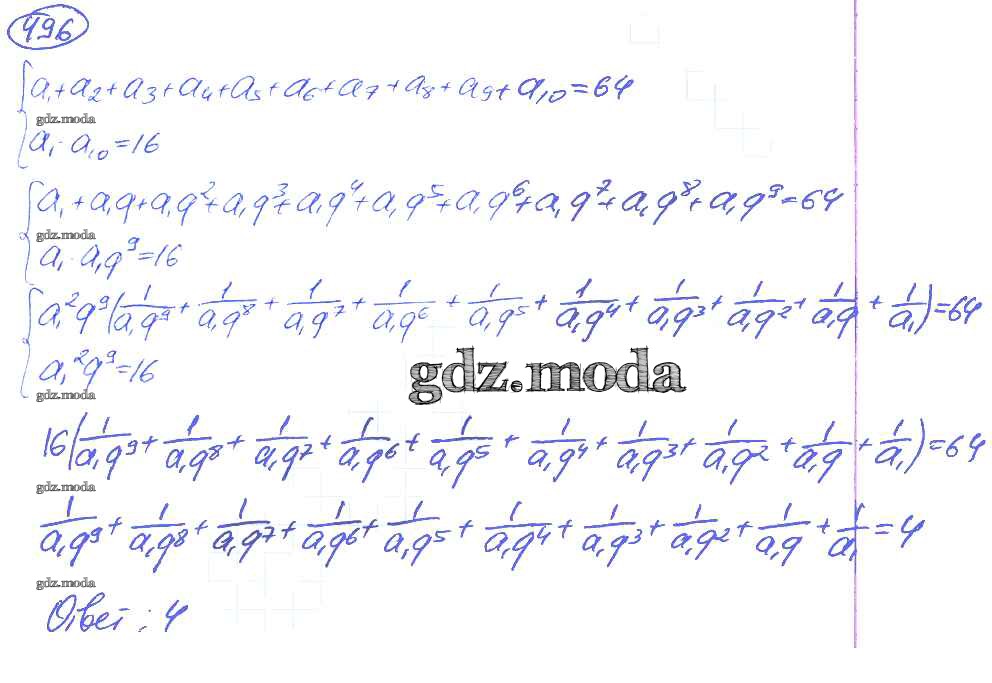 496
a₁+a₂+a₃+a₄+a₅+a₆+a₇+a₈+a₉+a₁₀=64
gdz.moda
a₁·a₁₀=16
a₁+a₁q+a₁q²+a₁q³+a₁q⁴+a₁q⁵+a₁q⁶+a₁q⁷+a₁q⁸+a₁q⁹=64
gdz.moda
a₁·a₁q⁹=16
a₁²q⁹(1/a₁q⁹+1/a₁q⁸+1/a₁q⁷+1/a₁q⁶+1/a₁q⁵+1/a₁q⁴+1/a₁q³+1/a₁q²+1/a₁q+1/a₁)=64
a₁²q⁹=16
gdz.moda
gdz.moda
16(1/a₁q⁹+1/a₁q⁸+1/a₁q⁷+1/a₁q⁶+1/a₁q⁵+1/a₁q⁴+1/a₁q³+1/a₁q²+1/a₁q+1/a₁)=64
gdz.moda
1/a₁q⁹+1/a₁q⁸+1/a₁q⁷+1/a₁q⁶+1/a₁q⁵+1/a₁q⁴+1/a₁q³+1/a₁q²+1/a₁q+1/a₁=4
gdz.moda
Ответ: 4